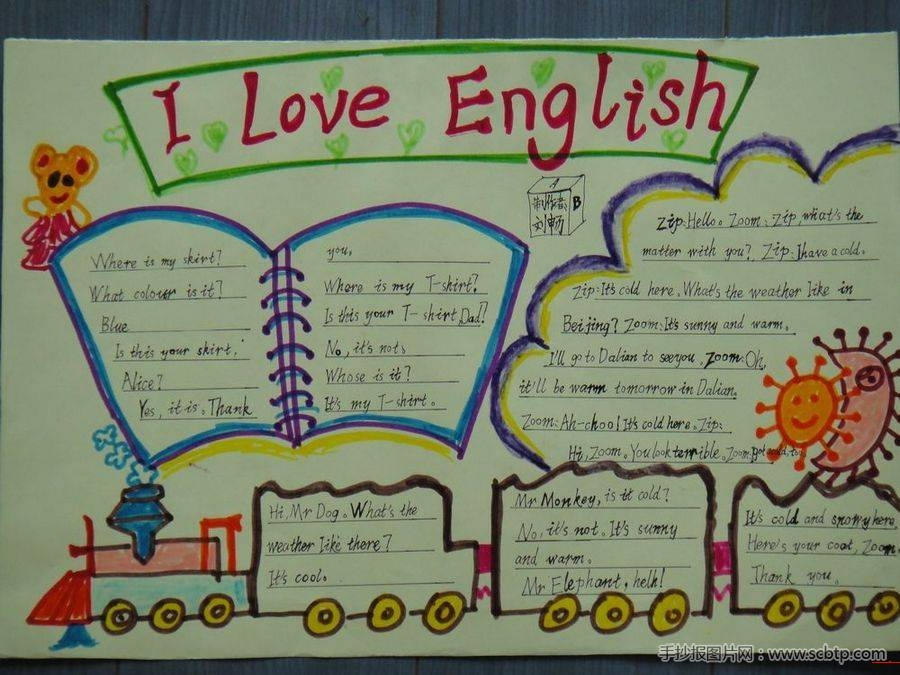 I Love English
A
B
制作者:
刘畅
Where is my skirt?
What colour is it?
Blue
Is this your skirt,
Alice?
Yes, it is. Thank
you.
Where is my T-skirt?
Is this your T-shirt, Dad?
No, it's not.
Whose is it?
It's my T-shirt.
Zip:Hello。Zoom:Zip,what's the
matter with you? Zip:Ihave a cold.
Zip:It's cold here.What's the weather like in
Beijing? Zoom:It's sunny and warm.
I'll go to Dalian to seeyou. Zoom:Oh,
it'll be warm tomorrow in Dalian.
Zoom:Ah-choo!It's cold here.Zip:
Hi,Zoom.You look terrible.Zoom:I
Hi, Mr Dog。What's the
weather like there?
It's cool.
Mr Monkey, is it cold?
No, it's not. It's sunny
and warm.
Mr Elephant, helh!
It's cold and snowy here.
Here's your coat, Zoom.
Thank you.
手抄报图片网:www.scbtp.com